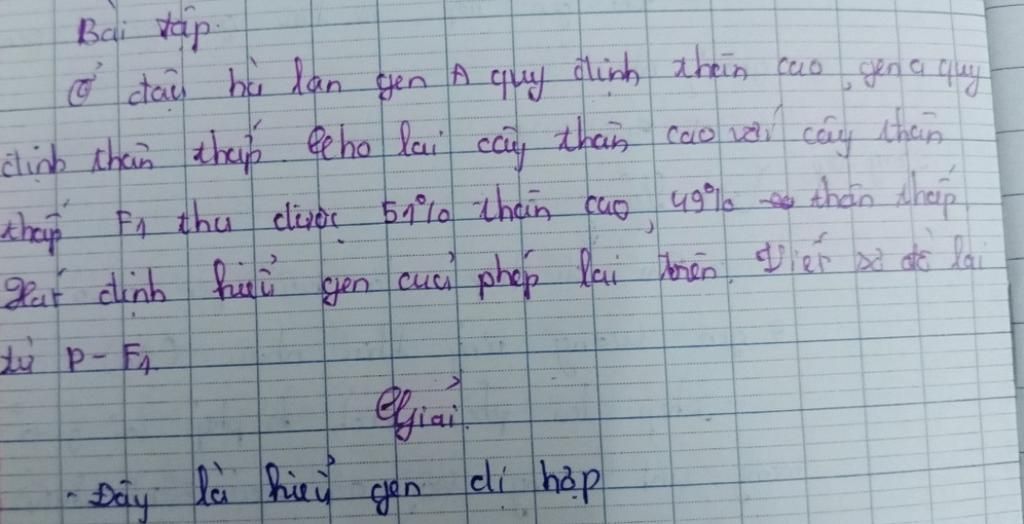 Bài tập.
Ở đậu hà lan gen A quy định thân cao, gen a quy
định thân thấp cho lai cây thân cao với cây thân
thấp F1 thu được 51% thân cao, 49% thân thấp
Xác định kiểu gen của phép lai trên. Viết sơ đồ lai
từ P - F1
Giải
- Đây là kiểu gen dị hợp